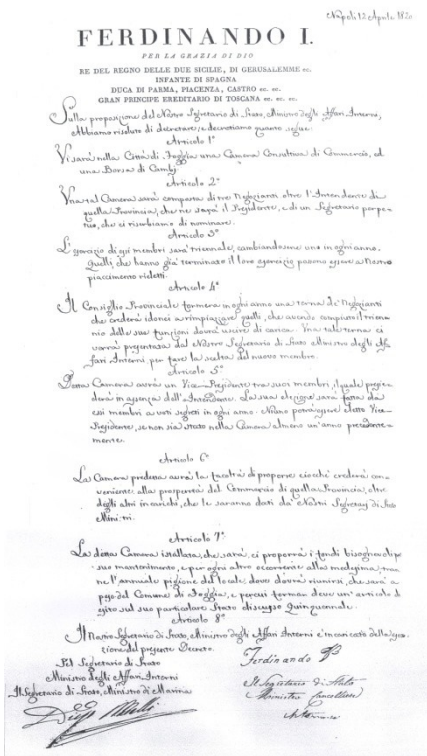 Napoli 12 Aprile 1820
FERDINANDO I.
PER LA GRAZIA DI DIO
RE DEL REGNO DELLE DUE SICILIE, DI GERUSALEMME ec.
INFANTE DI SPAGNA
DUCA DI PARMA, PIACENZA, CASTRO ec. ec.
GRAN PRINCIPE EREDITARIO DI TOSCANA ec. ec. ec.
Sulla proposizione del Nostro Segretario di Stato, Ministro degli Affari Interni,
Abbiamo risoluto di decretare, e decretiamo quanto segue
Articolo 1°
Vi sarà nella Città di Foggia una Camera Consultiva di Commercio, ed
una Borsa di Cambj.
Articolo 2°
Una tal Camera sarà composta di tre Negozianti oltre l'Intendente di
quella Provincia, che ne sarà il Presidente, e di un Segretario perpe-
tuo, che ci riserbiamo di nominare.
Articolo 3°
L'esercizio di essi membri sarà triennale, cambiandosene uno in ogni anno.
Quelli che hanno già terminato il loro esercizio possono essere a Nostro
piacimento rieletti.
Articolo 4°
Il Consiglio Provinciale formerà in ogni anno una terna de' Negozianti
che crederà idonei a rimpiazzare quello, che avendo compiuto il trien-
nio delle sue funzioni dovrà uscire di carica. Una tale terna ci
verrà presentata dal Nostro Segretario di Stato Ministro degli Af-
fari Interni, per fare la scelta del nuovo membro.
Articolo 5°
Detta Camera avrà un Vice-Presidente tra suoi membri, il quale presie-
derà in assenza dell'Intendente. La sua elezione sarà fatta da
essi membri a voti segreti in ogni anno. Niuno potrà essere eletto Vice-
Presidente, se non sia stato nella Camera almeno un'anno precedente-
mente.
Articolo 6°
La Camera predetta avrà la facoltà di proporre ciocchè crederà con-
veniente alla prosperità del Commercio di quella Provincia, oltre
degli altri incarichi, che le saranno dati da' Nostri Segretarj di Stato
Ministri.
Articolo 7°
La detta Camera istallata, che sarà, ci proporrà i fondi bisognevoli pe'l
suo mantenimento, e per ogni altro occorrente alla medesima, me-
no l'annuale pigione del locale, dove dovrà riunirsi, che sarà a
peso del Comune di Foggia, e perciò formar deve un'articolo d'
esito sul suo particolare Stato discusso Quinquennale.
Articolo 8°
Il Nostro Segretario di Stato, Ministro degli Affari Interni è incaricato della esecu-
zione del presente Decreto.
Pel Segretario di Stato
Ministro degli Affari Interni
Il Segretario di Stato, Ministro di Marina
Ferdinando
Il Segretario di Stato
Ministro Cancelliere